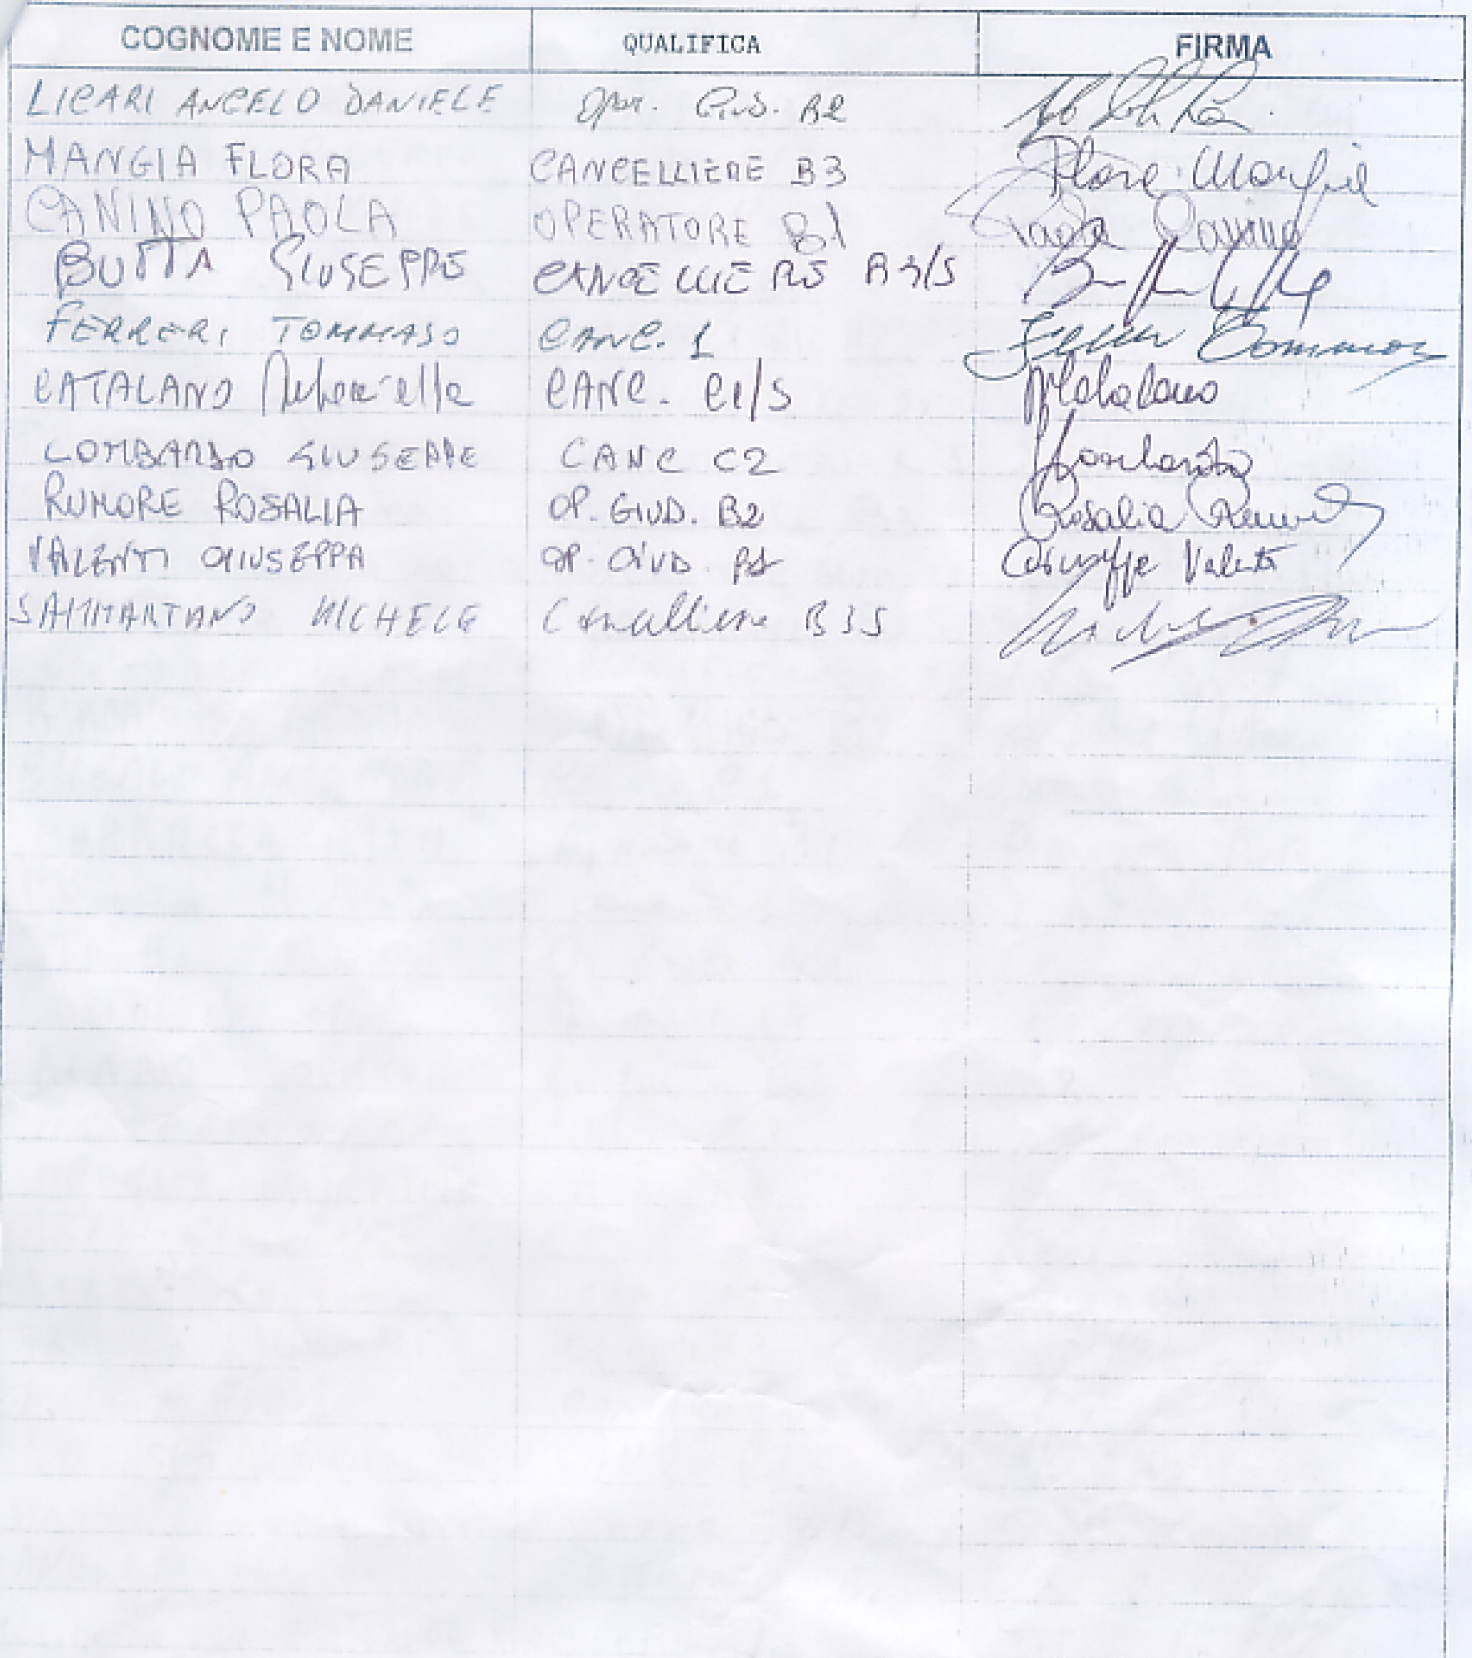 COGNOME E NOME QUALIFICA FIRMA
LICARI ANGELO DANIELE Oper. Giud. B2
MANGIA FLORA CANCELLIERE B3 Flora Mangia
CANINO PAOLA OPERATORE B1 Paola Canino
BUTTA GIUSEPPE CANCELLIERE B3/S
FERRERI TOMMASO CANC. 1 Tommaso
CATALANO Antonella CANC. C1/S Catalano
LOMBARDO GIUSEPPE CANC C2 Lombardo
RUMORE ROSALIA OP. GIUD. B2 Rosalia Rumore
VALENTI GIUSEPPA OP. GIUD. B1 Giuseppa Valenti
SAMMARTANO MICHELE Cancelliere B3S